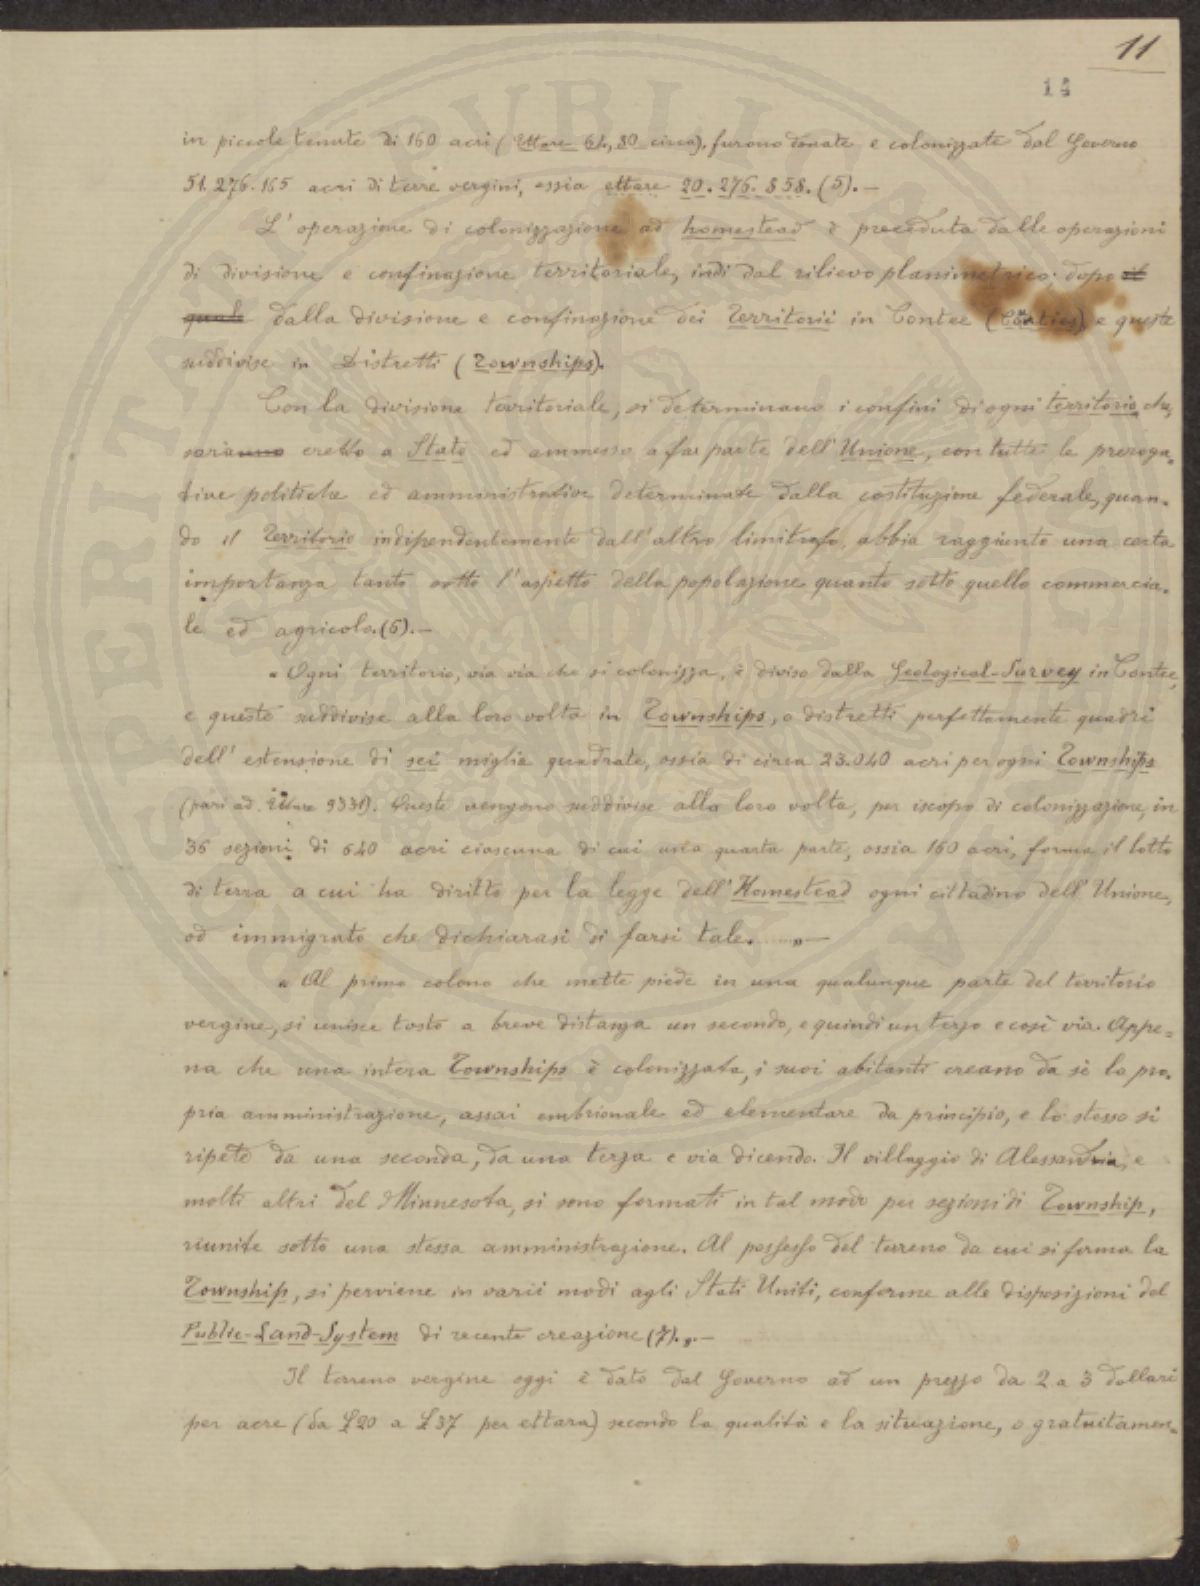 11
14
in piccole tenute di 160 acri (Ettare 64,80 circa), furono donate e colonizzate dal Governo
51.276.165 acri di terre vergini, ossia ettare 20.276.858. (5).—
L'operazione di colonizzazione ad homestead è preceduta dalle operazioni
di divisione e confinazione territoriale, indi dal rilievo planimetrico; dopo il
quale dalla divisione e confinazione dei Territorii in Contee (Conties) e queste
suddivise in Distretti (Townships).
Con la divisione territoriale, si determinano i confini di ogni territorio che,
saranno eretto a Stato ed ammesso a far parte dell'Unione, con tutte le preroga-
tive politiche ed amministrative determinate dalla costituzione federale, quan-
do il Territorio indipendentemente dall'altro limitrofo, abbia raggiunto una certa
importanza tanto sotto l'aspetto della popolazione quanto sotto quello commercia-
le ed agricolo. (6).—
"Ogni territorio, via via che si colonizza, è diviso dalla Geological-Survey in Contee,
e queste suddivise alla loro volta in Townships, o distretti perfettamente quadri
dell'estensione di sei miglia quadrate, ossia di circa 23.040 acri per ogni Townships
(pari ad Ettare 9331). Questi vengono suddivise alla loro volta, per iscopo di colonizzazione, in
36 sezioni di 640 acri ciascuna di cui una quarta parte, ossia 160 acri, forma il lotto
di terra a cui ha diritto per la legge dell'Homestead ogni cittadino dell'Unione,
od immigrato che dichiarasi di farsi tale. ...."—
"Al primo colono che mette piede in una qualunque parte del territorio
vergine, si unisce tosto a breve distanza un secondo, e quindi un terzo e così via. Appe-
na che una intera Townships è colonizzata, i suoi abitanti creano da sè la pro-
pria amministrazione, assai embrionale ed elementare da principio, e lo stesso si
ripete da una seconda, da una terza e via dicendo. Il villaggio di Alessandria, e
molti altri del Minnesota, si sono formati in tal modo per sezioni di Township,
riunite sotto una stessa amministrazione. Al possesso del terreno da cui si forma la
Township, si perviene in varii modi agli Stati Uniti, conforme alle disposizioni del
Public-Land-System di recente creazione (7)."—
Il terreno vergine oggi è dato dal Governo ad un prezzo da 2 a 3 dollari
per acre (da £20 a £37 per ettara) secondo la qualità e la situazione, o gratuitamen-